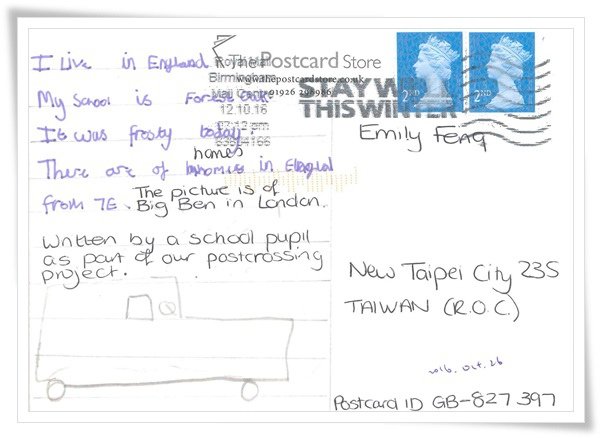 I live in England
My school is
It was frosty today.
homes
There are of in England
from 7E. The picture is of
Big Ben in London.
Written by a school pupil
as part of our postcrossing
project.
The Postcard Store
www.thepostcardstore.co.uk
01926
Royal Mail
Birmingham
Mail Centre
12.10.16
STAY WELL
THIS WINTER
2ND
2ND
Emily Feng
New Taipei City 235
TAIWAN (R.O.C.)
2016. Oct. 26
Postcard ID GB-827397